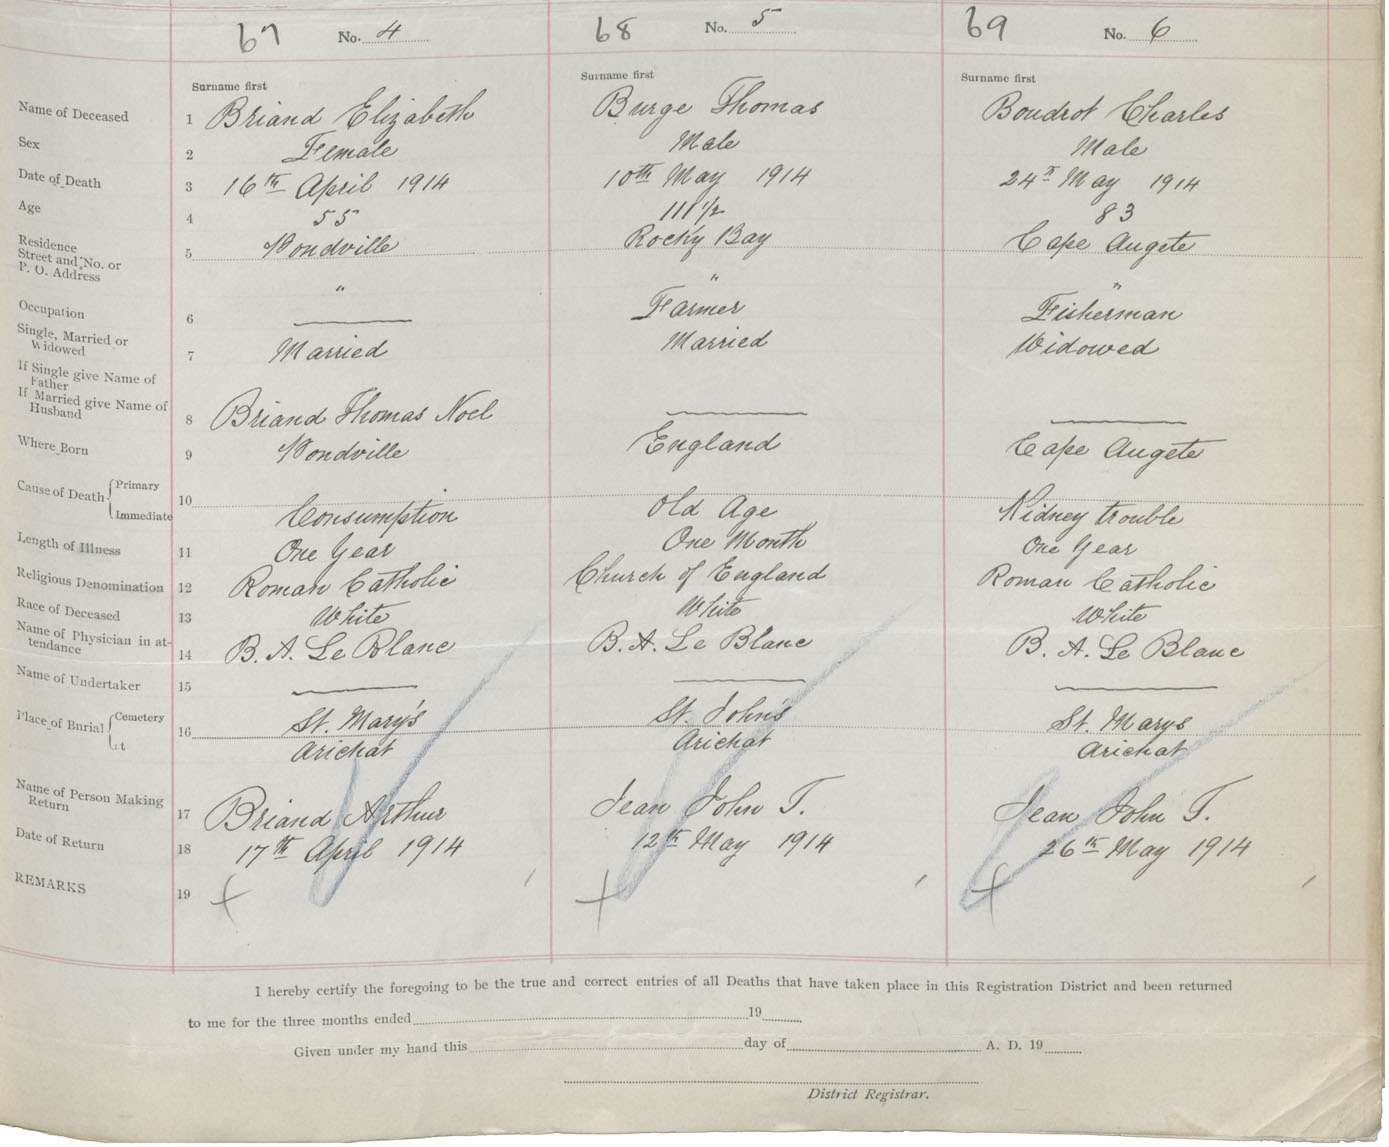 67 No. 4 68 No. 5 69 No. 6
Surname first Surname first Surname first
Name of Deceased 1 Briand Elizabeth Burge Thomas Boudrot Charles
Sex 2 Female Male Male
Date of Death 3 16th April 1914 10th May 1914 24th May 1914
Age 4 55 111 1/2 83
Residence
Street and No. or 5 Pondville Rocky Bay Cape Augete
P. O. Address
" " "
Occupation 6 Farmer Fisherman
Single, Married or
Widowed 7 Married Married Widowed
If Single give Name of
Father
If Married give Name of
Husband 8 Briand Thomas Noel
Where Born 9 Pondville England Cape Augete
Cause of Death { Primary 10
Immediate Consumption Old Age Kidney trouble
Length of Illness 11 One Year One Month One Year
Religious Denomination 12 Roman Catholic Church of England Roman Catholic
Race of Deceased 13 White White White
Name of Physician in at-
tendance 14 B. A. Le Blanc B. A. Le Blanc B. A. Le Blanc
Name of Undertaker 15
Place of Burial { Cemetery 16 St. Mary's St. John's St. Marys
At Arichat Arichat Arichat
Name of Person Making
Return 17 Briand Arthur Jean John T. Jean John T.
Date of Return 18 17th April 1914 12th May 1914 26th May 1914
REMARKS 19
I hereby certify the foregoing to be the true and correct entries of all Deaths that have taken place in this Registration District and been returned
to me for the three months ended 19
Given under my hand this day of A. D. 19
District Registrar.